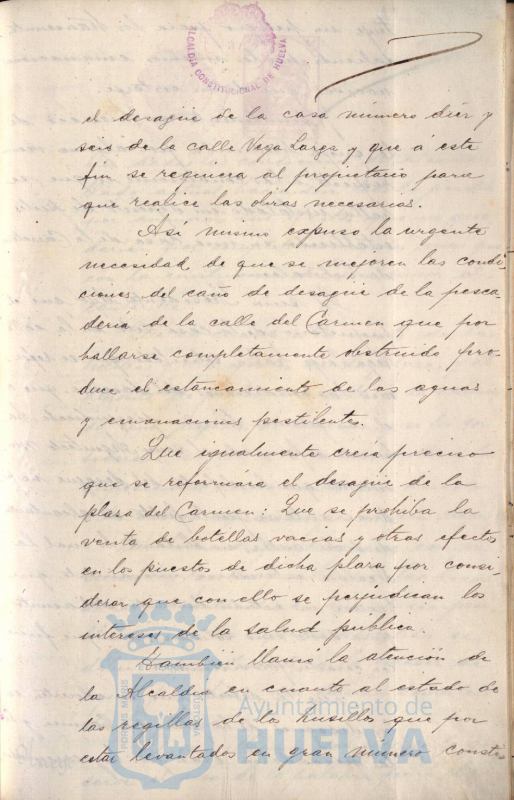 ALCALDÍA CONSTITUCIONAL DE HUELVA
el desagüe de la casa número diez y
seis de la calle Vega Larga y que á este
fin se requiera al propietario para
que realice las obras necesarias.
Así mismo expuso la urgente
necesidad de que se mejoren las condi-
ciones del caño de desagüe de la pesca-
dería de la calle del Carmen que por
hallarse completamente obstruido pro-
duce el estancamiento de las aguas
y emanaciones pestilentes.
Que igualmente creía preciso
que se reformára el desagüe de la
plaza del Carmen: Que se prohiba la
venta de botellas vacias y otros efectos
en los puestos de dicha plaza por consi-
derar que con ello se perjudican los
intereses de la salud pública.
También llamó la atención de
la Alcaldía en cuanto al estado de
las regillas de los husillos que por
estar levantados en gran número consti-
Ayuntamiento de
HUELVA